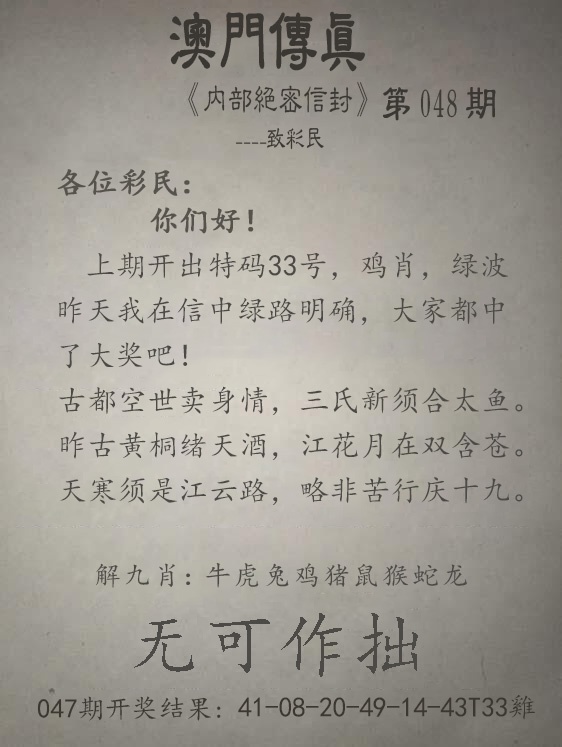 澳門傳真
《内部絕密信封》第048期
----致彩民
各位彩民：
你们好！
上期开出特码33号，鸡肖，绿波
昨天我在信中绿路明确，大家都中
了大奖吧！
古都空世卖身情，三氏新须合太鱼。
昨古黄桐绪天酒，江花月在双含苍。
天寒须是江云路，略非苦行庆十九。
解九肖：牛虎兔鸡猪鼠猴蛇龙
无可作拙
047期开奖结果：41-08-20-49-14-43T33雞